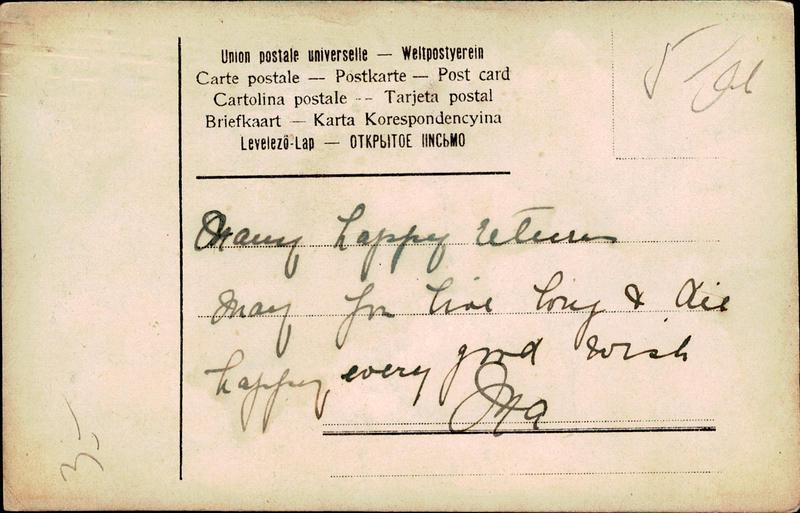 Union postale universelle — Weltpostverein
Carte postale — Postkarte — Post card
Cartolina postale -- Tarjeta postal
Briefkaart — Karta Korespondencyina
Levelező-Lap — ОТКРЫТОЕ ПИСЬМО
Many happy returns
May you live long & die
happy, every good wish
3,-